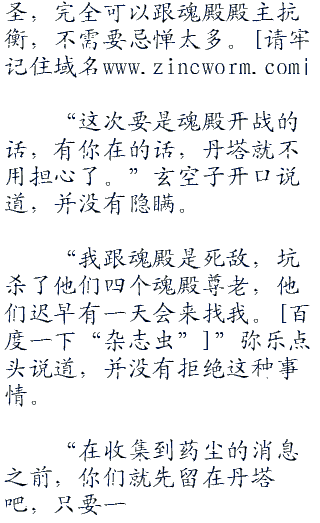 圣，完全可以跟魂殿殿主抗
衡，不需要忌惮太多。[请牢
记住域名www.zincworm.com|
“这次要是魂殿开战的
话，有你在的话，丹塔就不
用担心了。”玄空子开口说
道，并没有隐瞒。
“我跟魂殿是死敌，坑
杀了他们四个魂殿尊老，他
们迟早有一天会来找我。[百
度一下“杂志虫”]”弥乐点
头说道，并没有拒绝这种事
情。
“在收集到药尘的消息
之前，你们就先留在丹塔
吧，只要一